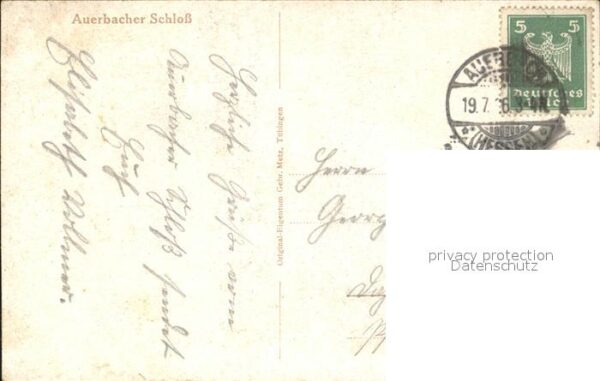 Auerbacher Schloß
Herzliche Grüße vom
Auerbacher Schloß sendet
Elisabeth Vollmer.
Original-Eigentum Gebr. Metz, Tübingen
5 5
Deutsches
Reich
AUERBACH
19.7.
(HESSEN)
Herrn
Georg
privacy protection
Datenschutz